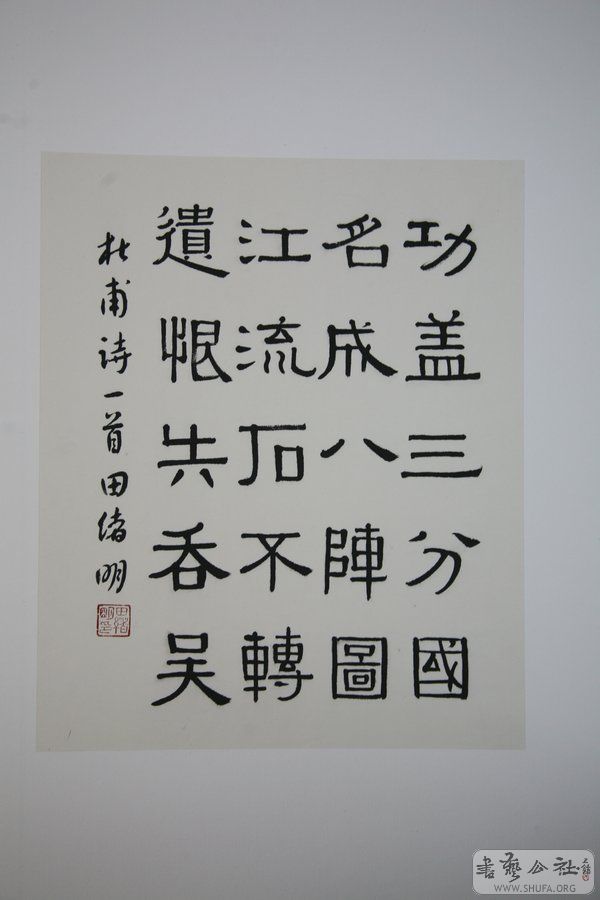 功盖三分國
名成八陣圖
江流石不轉
遺恨失吞吴
杜甫诗一首田绪明
田绪明印
書藝公社
WWW.SHUFA.ORG